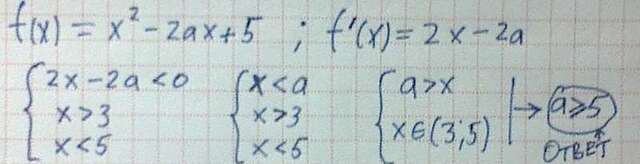 f(x) = x² - 2ax + 5 ; f'(x) = 2x - 2a
{ 2x - 2a < 0 { x < a { a > x
x > 3 x > 3 x ∈ (3; 5) | → a ⩾ 5
x < 5 x < 5 ОТВЕТ